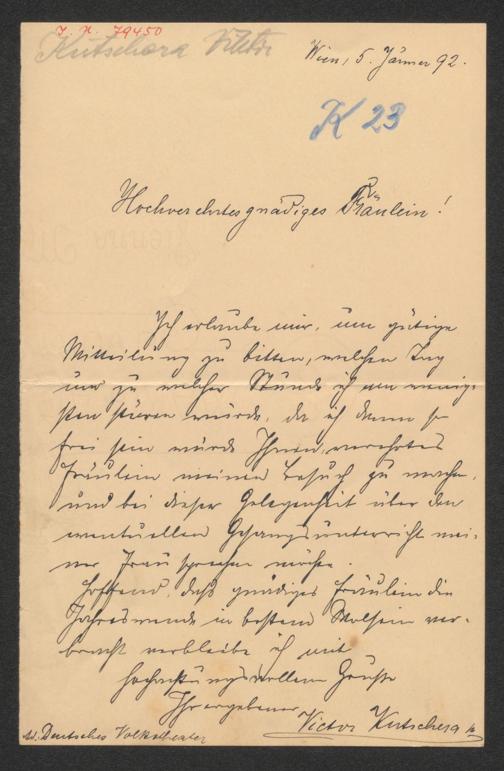 I. N. 79450
Kutschera Viktor
Wien, 5. Jänner 92.
K 23
Hochverehrtes gnädiges Fräulein!
Ich erlaube mir, um gütige
Mitteilung zu bitten, welchen Tag
und zu welcher Stunde ich am wenig-
sten stören würde, da ich dann so
frei sein würde Ihnen, verehrtes
Fräulein meinen Besuch zu machen,
und bei dieser Gelegenheit über den
eventuellen Gesangsunterricht mei-
ner Frau sprechen möchte.
Hoffend, daß gnädiges Fräulein die
Jahreswende in bestem Wolsein ver-
bracht verbleibe ich mit
hochachtungsvollem Gruße
Ihr ergebener
Victor Kutschera
Deutsches Volkstheater